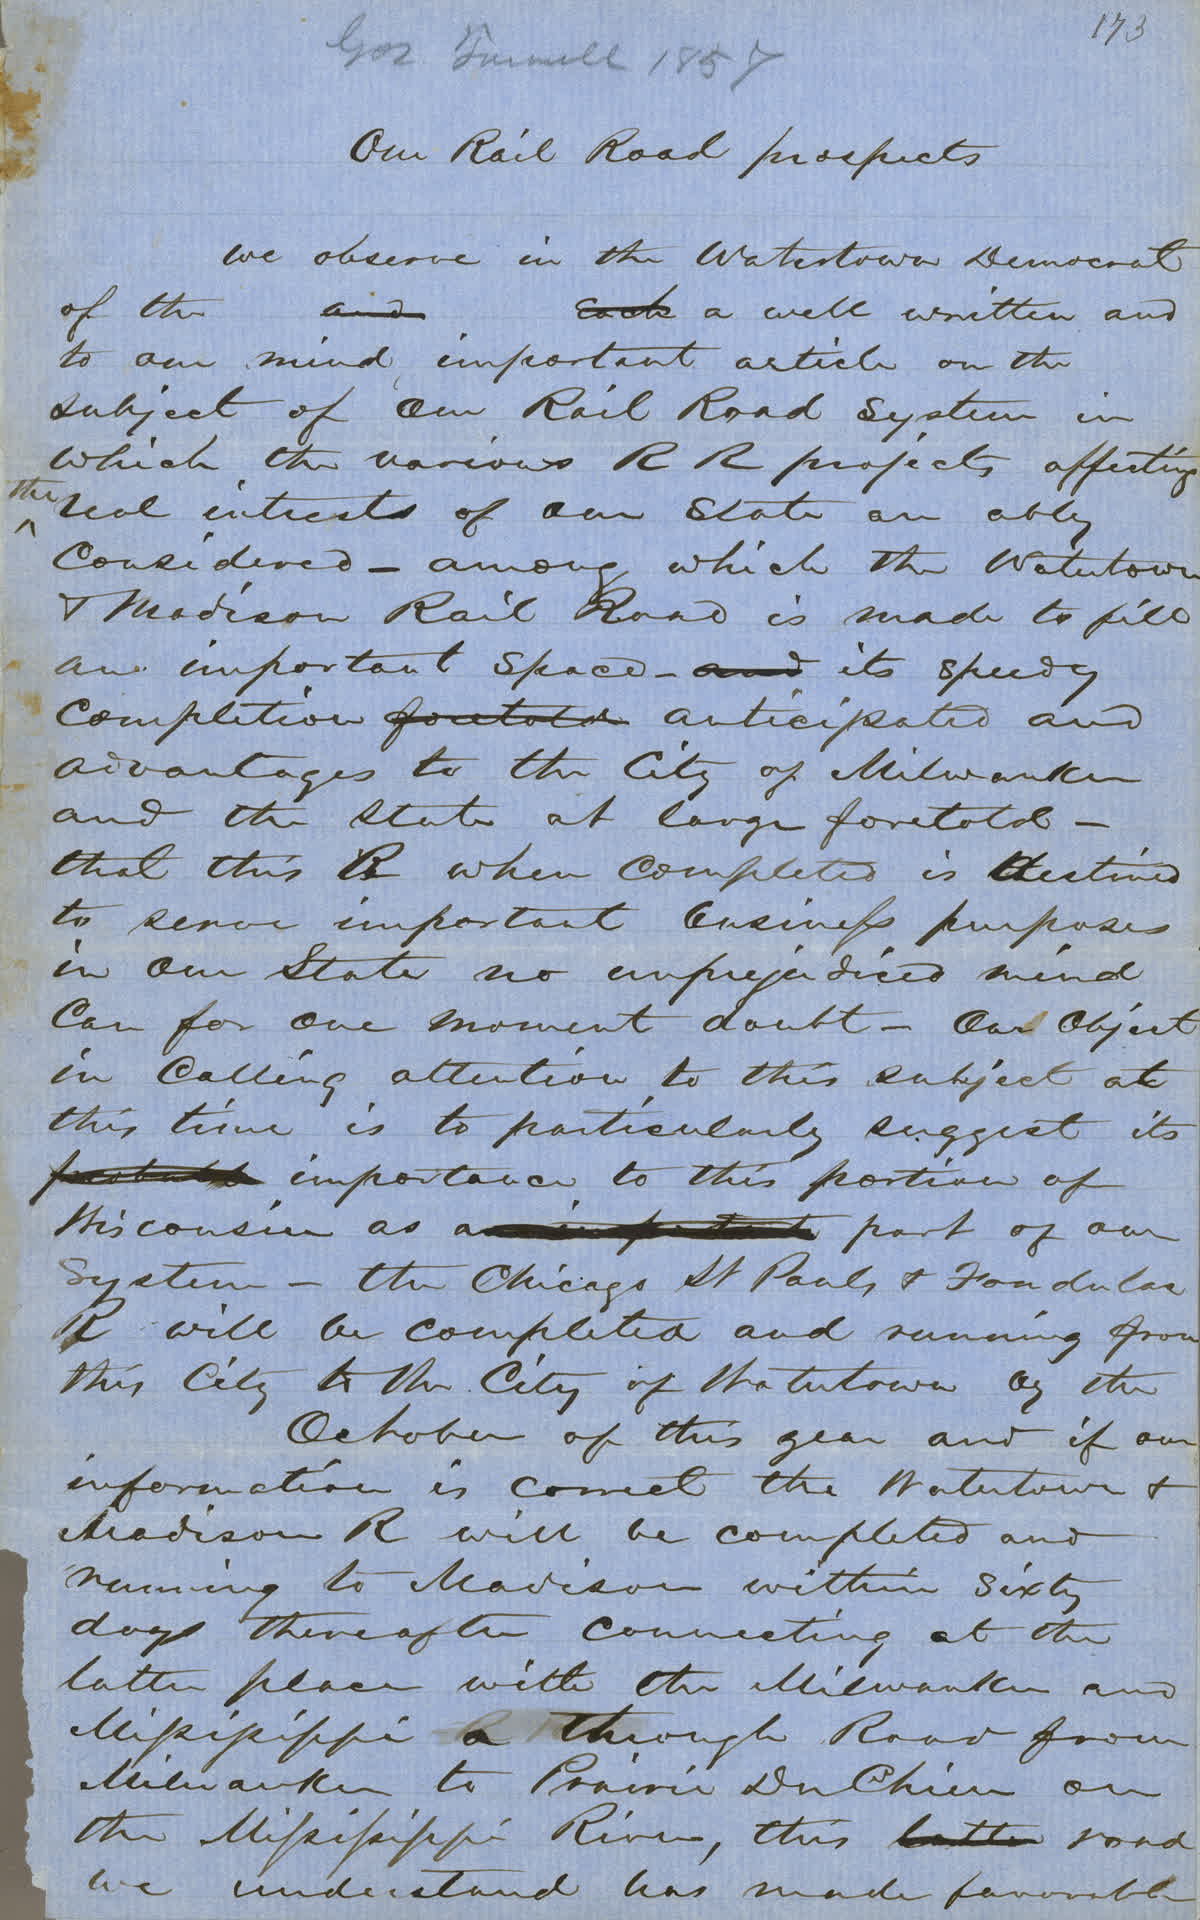 173
Gov Farwell 1857
Our Rail Road prospects
we observe in the Watertown Democrat
of the and each a well written and
to our mind, important article on the
subject of Our Rail Road System in
which the various R R projects affecting
the
real intrests of our State are ably
Considered – among which the Watertown
& Madison Rail Road is made to fill
an important Space – and its speedy
Completion foretold anticipated and
advantages to the City of Milwaukee
and the State at large foretold –
that this R when Completed is destined
to serve important business purposes
in Our State no unprejudised mind
Can for one moment doubt – Our Object
in Calling attention to this subject at
this time is to particularly suggest its
probable importance to this portion of
Wisconsin as an important part of our
System – the Chicago St Pauls & Fondulac
R will be completed and running from
this City to the City of Watertown by the
October of this year and if our
information is correct the Watertown &
Madison R will be completed and
running to Madison within Sixty
days thereafter connecting at the
latter place with the Milwaukee and
Missisippi a through Road from
Milwaukee to Prairie Du Chien on
the Missisippi River, this latter road
we understand has made favorable